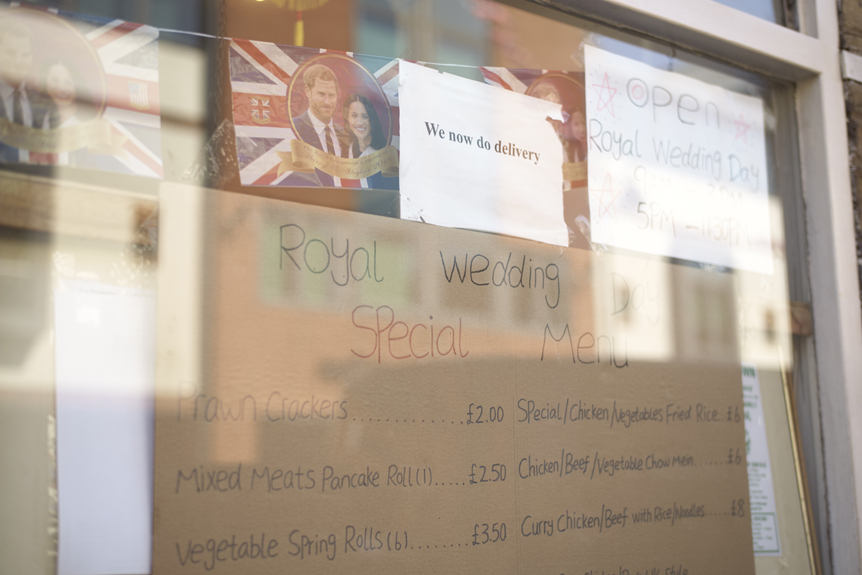 We now do delivery
OPEN
Royal Wedding Day
5PM – 11:30PM
Royal Wedding Day
SPecial Menu
Prawn Crackers............. £2.00
Mixed Meats Pancake Roll (1)..... £2.50
Vegetable Spring Rolls (6)........ £3.50
SPecial/Chicken/Vegetables Fried Rice...£6
Chicken/Beef/Vegetable Chow Mein.......£6
Curry Chicken/Beef with Rice/Noodles.....£8